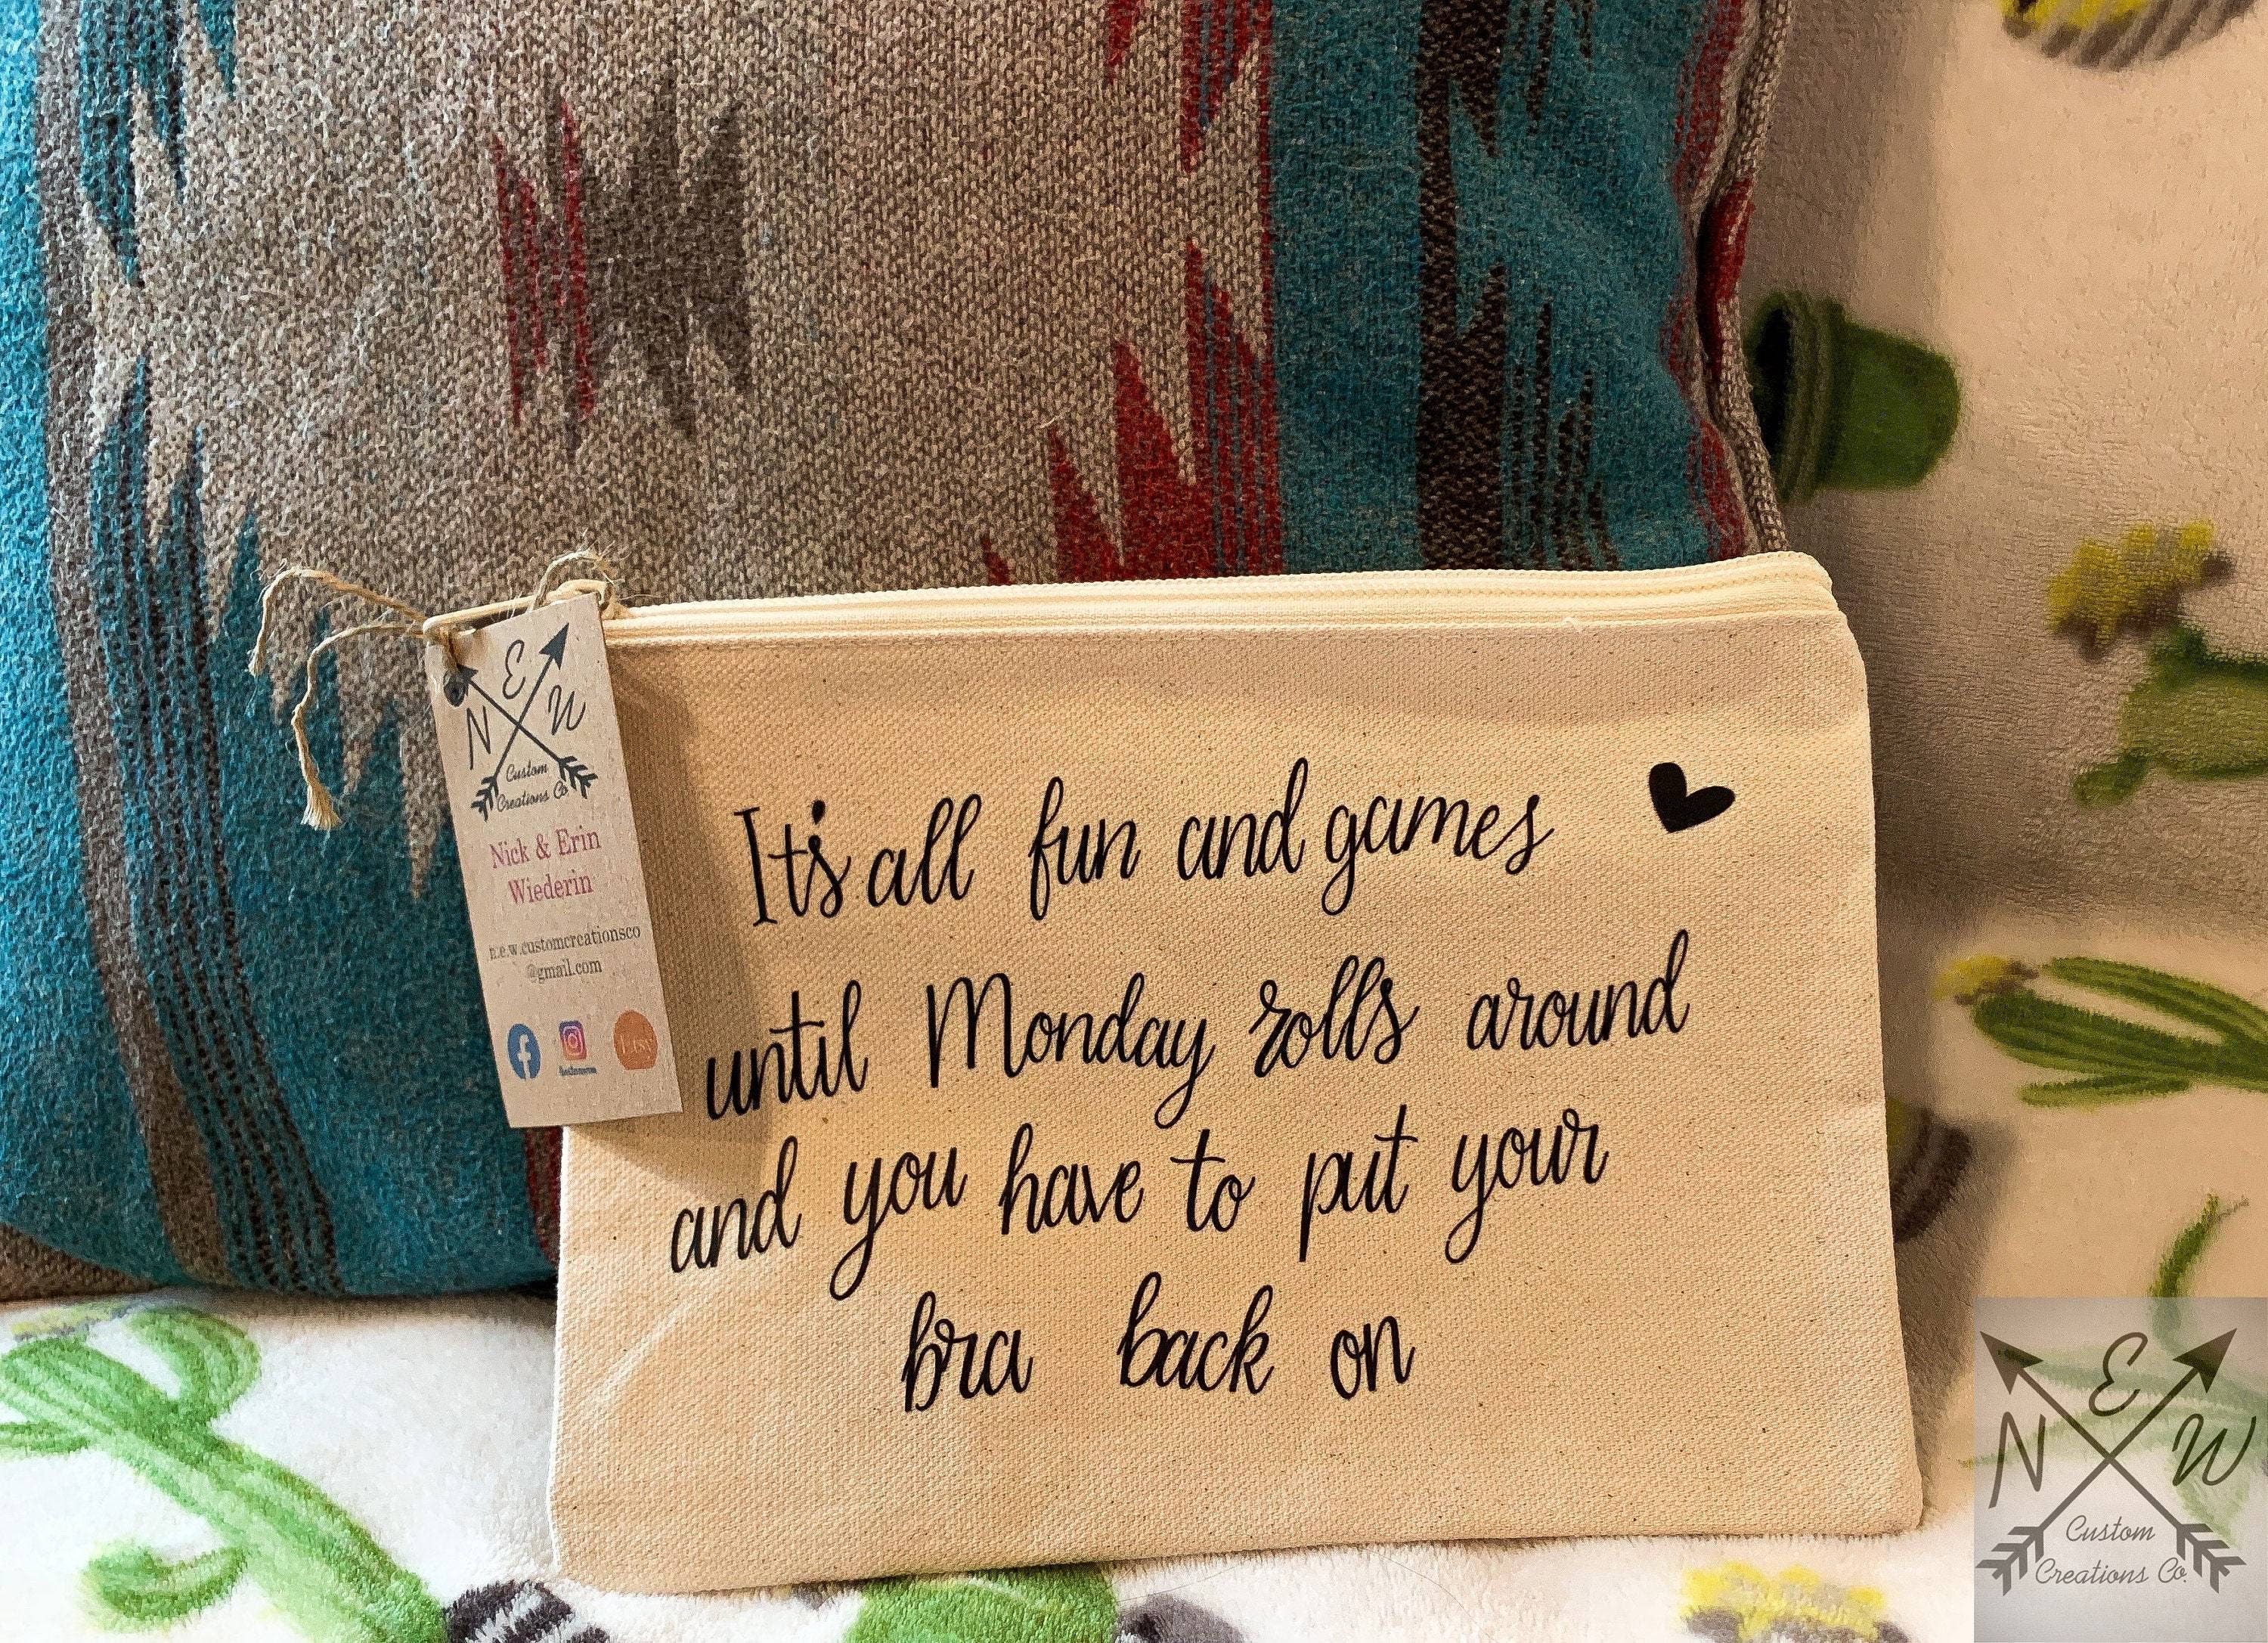 N E W
Custom
Creations Co
Nick & Erin
Wiederin
n.e.w.customcreationsco
@gmail.com
Etsy
It's all fun and games
until Monday rolls around
and you have to put your
bra back on
N E W
Custom
Creations Co.